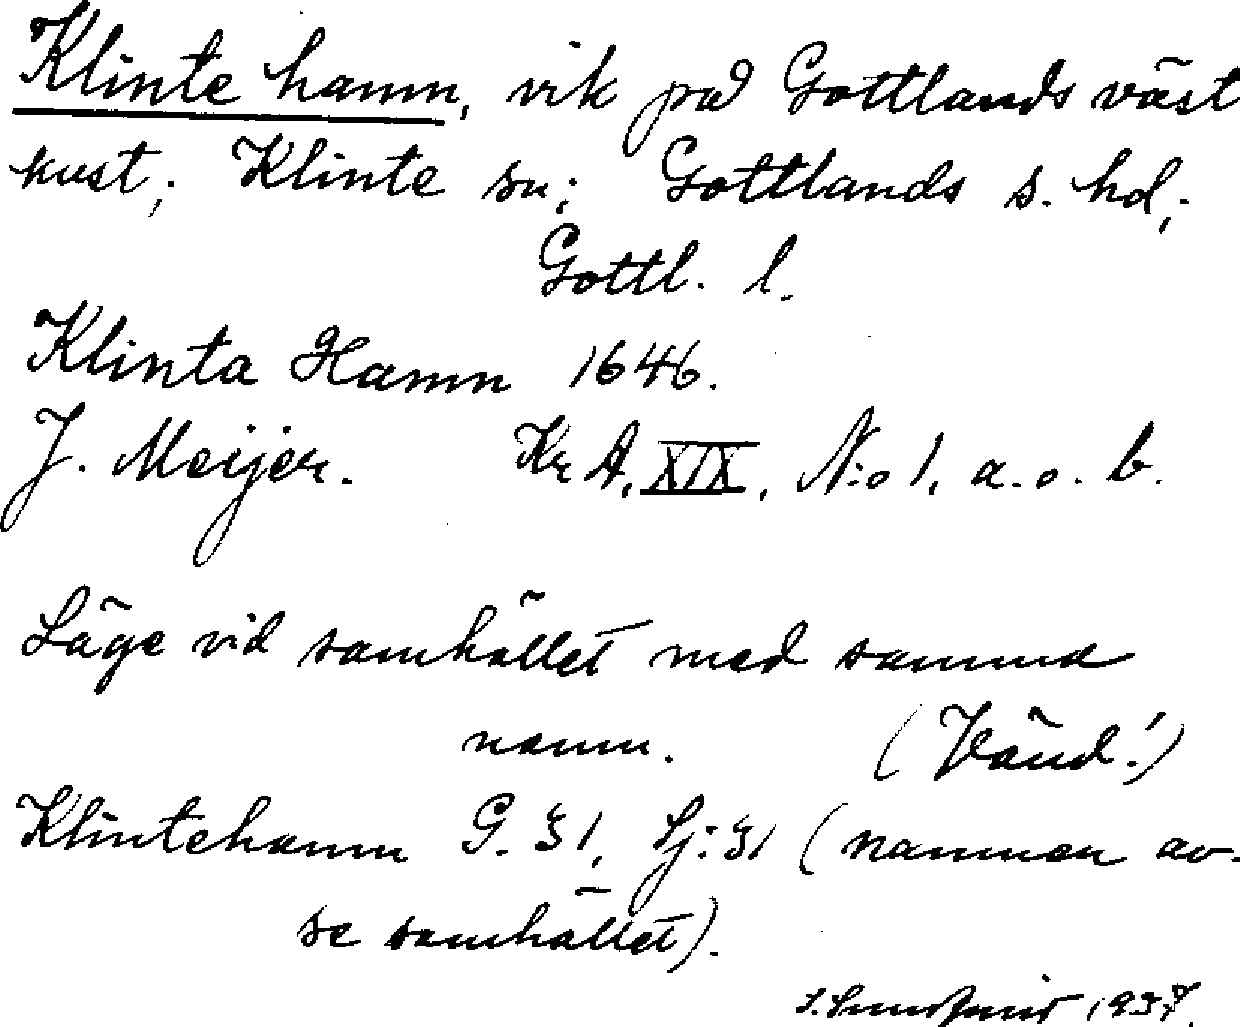 Klinte hamn, vik på Gottlands väst
kust; Klinte sn; Gottlands s. hd;
Gottl. l.
Klinta Hamn 1646.
J. Meijer. Kr A, XIX, N:o 1, a. o. b.
Läge vid samhället med samma
namn. (Vänd!)
Klintehamn G. 31, Lj: 31 (namnen av-
se samhället).
1937.